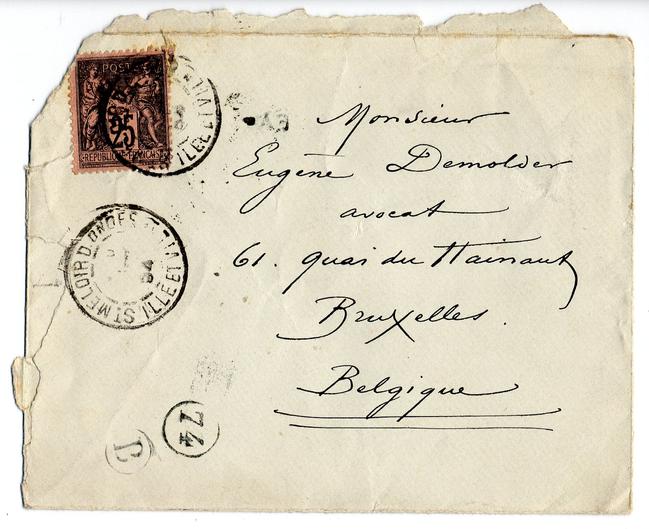 POSTES
25
REPUBLIQUE FRANCAISE
ILLE ET VILAINE
Monsieur
Eugène Demolder
avocat
61. quai du Hainaut
Bruxelles.
Belgique
ST MELOIR D. ONDES
ILLE ET VILAINE
94
74